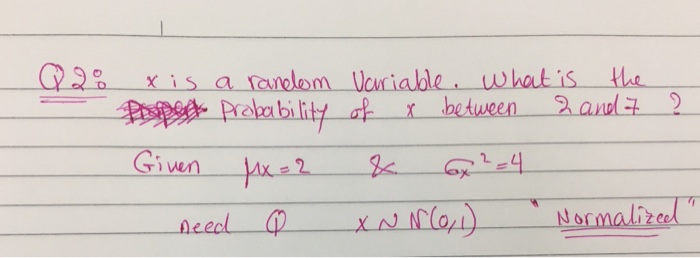 Q2: x is a random Variable. What is the
Probability of x between 2 and 7 ?
Given μx = 2 & σx² = 4
need Φ x ~ N(0,1) "Normalized"